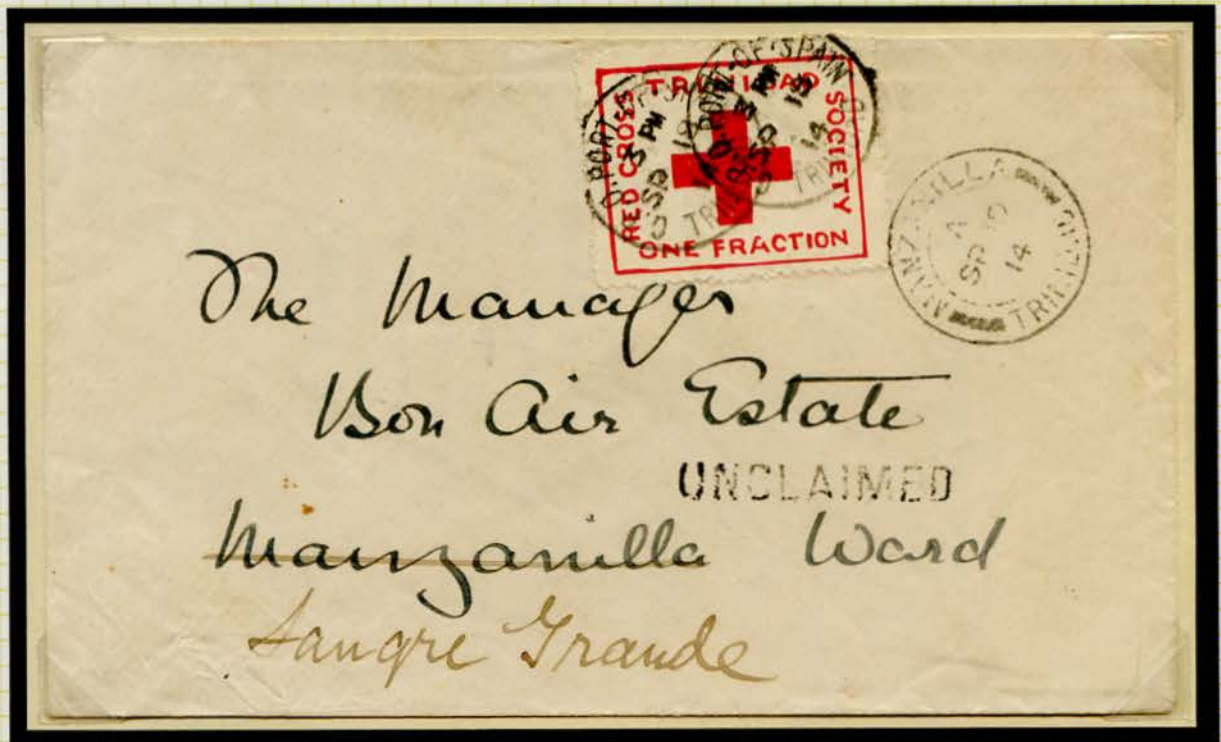 TRINIDAD
RED CROSS
SOCIETY
ONE FRACTION
G.P.O. PORT-OF-SPAIN
3 PM
SP 18
14
TRINIDAD
MANZANILLA
A
SP
14
TRINIDAD
The Manager
Bon Air Estate
UNCLAIMED
Manzanilla Ward
Sangre Grande